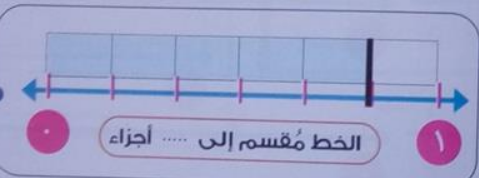 الخط مُقسم إلى ..... أجزاء
٠ ١